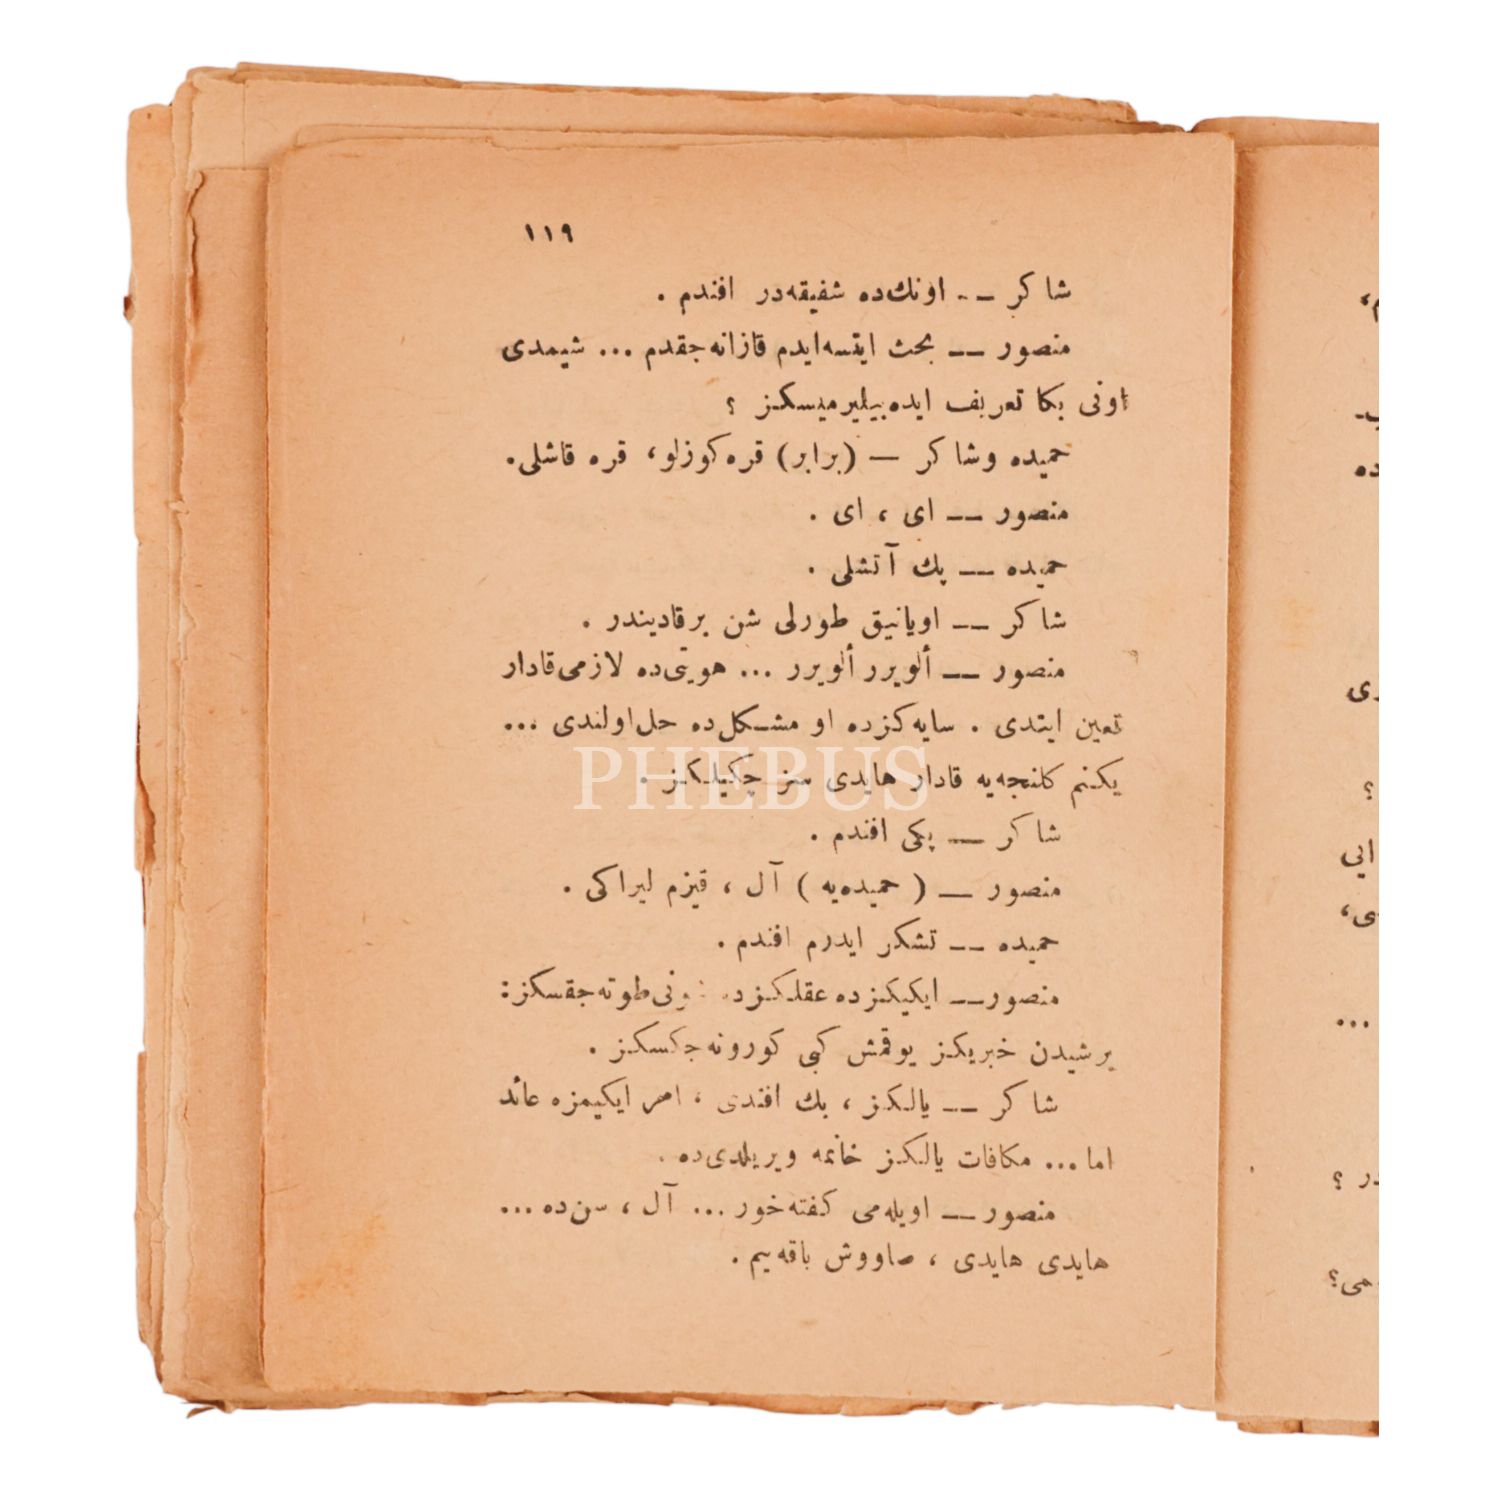 ١١٩
شاكر —- اونك‌ده شفيقه‌در افندم .
منصور —- بحث ايتسه‌ايدم قازانه‌جقدم ... شيمدى
اونى بكا تعريف ايده‌بيليرميسكز ؟
حميده وشاكر — (برابر) قره‌كوزلو، قره قاشلى.
منصور —- اى ، اى .
حميده —- پك آتشلى .
شاكر —- اويانيق طورلى شن برقاديندر .
منصور —- ألويرر ألويرر ... هويتى‌ده لازمى‌قادار
تعين ايتدى . سايه‌كزده او مشكل‌ده حل‌اولندى ...
يكنم كلنجه‌يه قادار هايدى سز چكيلكز .
PHEBUS
شاكر —- پكى افندم .
منصور — ( حميده‌يه ) آل ، قيزم ليراكى .
حميده —- تشكر ايدرم افندم .
منصور—- ايكيكزده عقلكزده نى‌طوته‌جقسكز :
برشيدن خبريكز يوقمش كبى كورونه‌جكسكز .
شاكر —- يالكز ، بك افندى ، امر ايكيمزه عائد
اما ... مكافات يالكز خانمه ويريلدى‌ده .
منصور —- اويله‌مى كفته‌خور ... آل ، سن‌ده ...
هايدى هايدى ، صاووش باقه‌يم .